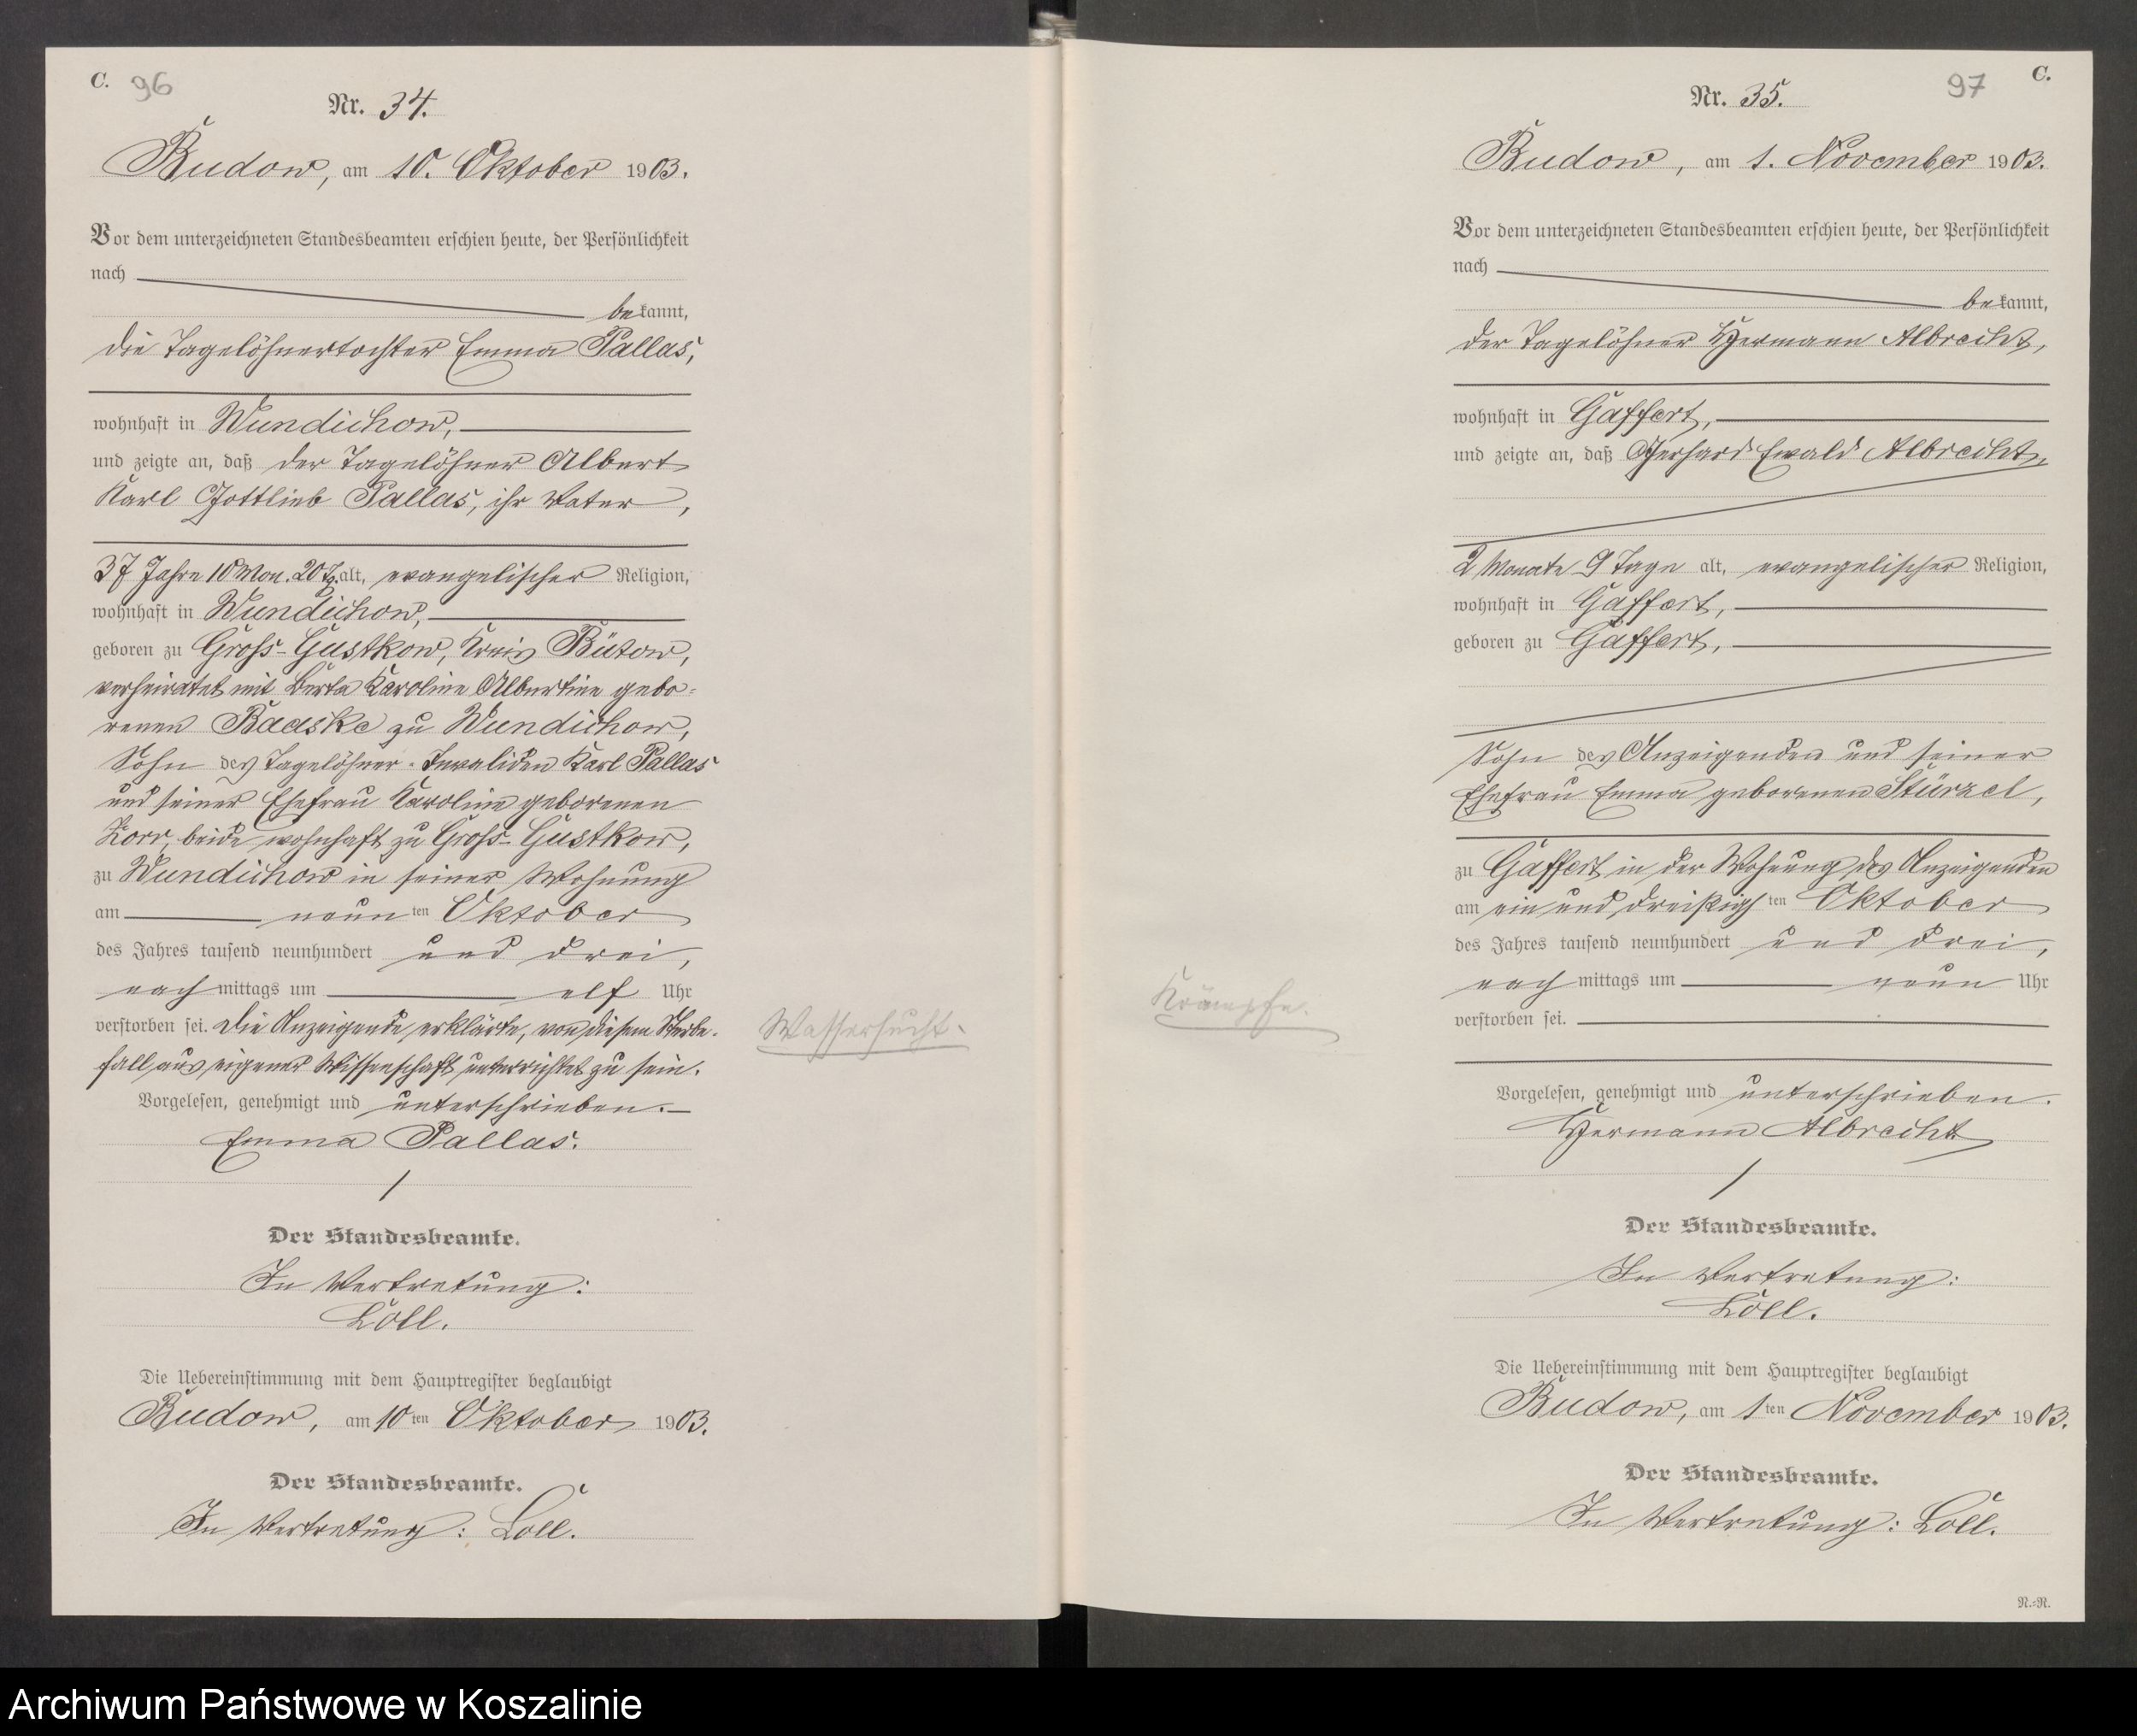 C. 96
Nr. 34.
Budow, am 10. Oktober 1903.
Vor dem unterzeichneten Standesbeamten erschien heute, der Persönlichkeit
nach
bekannt,
die Tagelöhnertochter Emma Pallas,
wohnhaft in Wundichow,
und zeigte an, daß der Tagelöhner Albert
Karl Gottlieb Pallas, ihr Vater,
37 Jahre 10 Mon. 20 Tg. alt, evangelischer Religion,
wohnhaft in Wundichow,
geboren zu Gross-Gustkow, Kreis Bütow,
verheiratet mit Berta Karoline Albertine gebo-
renen Baaske zu Wundichow,
Sohn des Tagelöhner-Invaliden Karl Pallas
und seiner Ehefrau Karoline geborenen
Korr, beide wohnhaft zu Gross-Gustkow,
zu Wundichow in seiner Wohnung
am neunten Oktober
des Jahres tausend neunhundert und drei,
nachmittags um elf Uhr
verstorben sei. Die Anzeigende erklärte, von diesem Sterbe-
fall aus eigener Wissenschaft unterrichtet zu sein.
Wassersucht.
Vorgelesen, genehmigt und unterschrieben.
Emma Pallas.
Der Standesbeamte.
In Vertretung:
Löll.
Die Uebereinstimmung mit dem Hauptregister beglaubigt
Budow, am 10ten Oktober 1903.
Der Standesbeamte.
In Vertretung: Löll.
97 C.
Nr. 35.
Budow, am 1. November 1903.
Vor dem unterzeichneten Standesbeamten erschien heute, der Persönlichkeit
nach
bekannt,
der Tagelöhner Hermann Albrecht,
wohnhaft in Gaffert,
und zeigte an, daß Gerhard Ewald Albrecht,
2 Monate 9 Tage alt, evangelischer Religion,
wohnhaft in Gaffert,
geboren zu Gaffert,
Sohn des Anzeigenden und seiner
Ehefrau Emma geborenen Stürzel,
zu Gaffert in der Wohnung des Anzeigenden
am ein und dreißigsten Oktober
des Jahres tausend neunhundert und drei,
nachmittags um neun Uhr
Krämpfe.
verstorben sei.
Vorgelesen, genehmigt und unterschrieben.
Hermann Albrecht
Der Standesbeamte.
In Vertretung:
Löll.
Die Uebereinstimmung mit dem Hauptregister beglaubigt
Budow, am 1ten November 1903.
Der Standesbeamte.
In Vertretung: Löll.
N.=N.
Archiwum Państwowe w Koszalinie